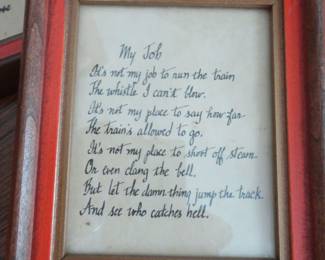 My Job
It's not my job to run the train
The whistle I can't blow.
It's not my place to say how far
The train's allowed to go.
It's not my place to shoot off steam
Or even clang the bell.
But let the damn thing jump the track
And see who catches hell.